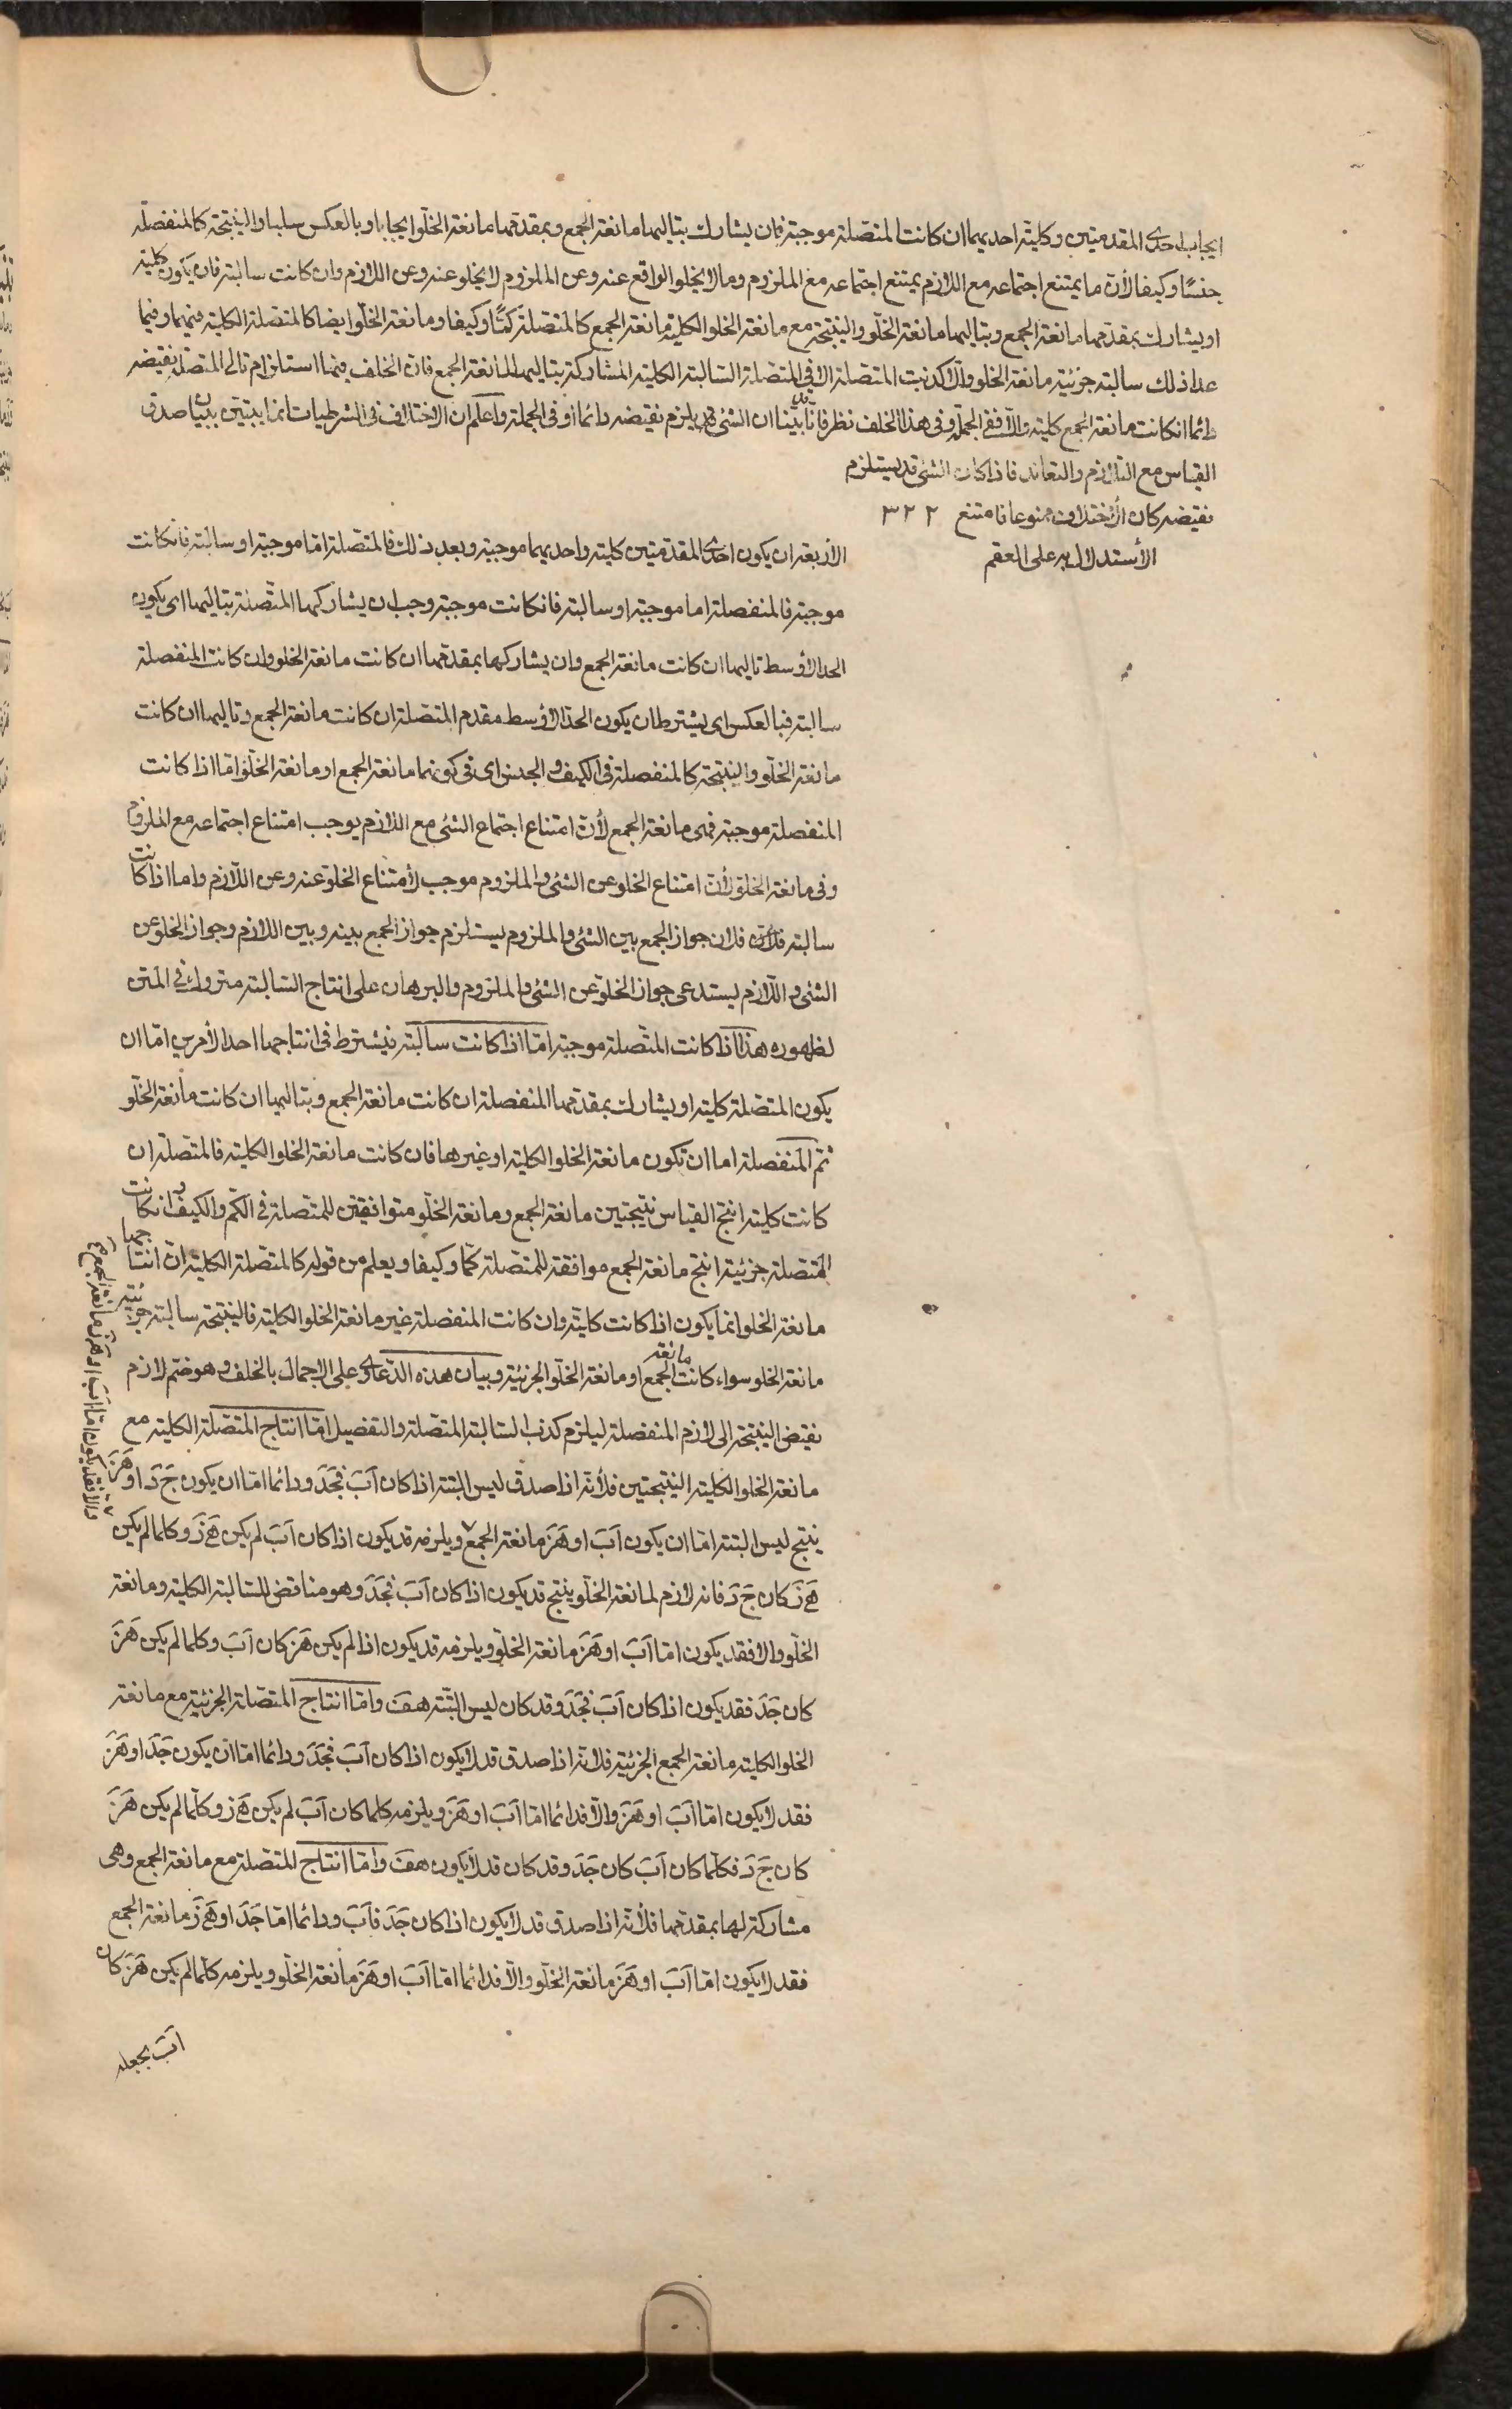 ايجاب احدى المقدمتين وكلية احديهما ان كانت المتصلة موجبة فان يشارك بتاليها مانعة الجمع وبمقدمها مانعة الخلو ايجابا وبالعكس سلبا والنتيجة كالمنفصلة
جنسا وكيفا لأن ما يمتنع اجتماعه مع اللازم يمتنع اجتماعه مع الملزوم وما لا يخلو الواقع عنه وعن الملزوم لا يخلو عنه وعن اللازم وان كانت سالبة فان يكون كلية
او يشارك بمقدمها مانعة الجمع وبتاليها مانعة الخلو والنتيجة مع مانعة الخلو الكلية مانعة الجمع كالمتصلة كمّا وكيفا ومانعة الخلو ايضا كالمتصلة الكلية فيهما وفيما
عدا ذلك سالبة جزئية مانعة الخلو والا كذبت المتصلة الا في المتصلة السالبة الكلية المشاركة بتاليها لمانعة الجمع فان الخلف فيها استلزام تالى المتصلة نقيضه
دائما ان كانت مانعة الجمع كلية والا ففي الجملة وفى هذا الخلف نظر فانا بيّنا ان الشئ قد يلزم نقيضه دائما او فى الجملة واعلم ان الاختلاف فى الشرطيات انما يتبين ببيان صدق
القياس مع التلازم والتعاند فاذا كان الشئ قد يستلزم
نقيضه كان الأختلاف ممنوعا فامتنع ٣٢٢
الأستدلال به على العقم
الاربعة ان يكون احدى المقدمتين كلية واحديهما موجبة وبعد ذلك فالمتصلة اما موجبة او سالبة فان كانت
موجبة فالمنفصلة اما موجبة او سالبة فان كانت موجبة وجب ان يشاركها المتصلة بتاليها اى يكون
الحد الأوسط تاليها ان كانت مانعة الجمع وان يشاركها بمقدمها ان كانت مانعة الخلو وان كانت المنفصلة
سالبة فبالعكس اى يشترط ان يكون الحد الأوسط مقدم المتصلة ان كانت مانعة الجمع وتاليها ان كانت
مانعة الخلو والنتيجة كالمنفصلة فى الكيف والجنس اى فى كونها مانعة الجمع او مانعة الخلو اما اذا كانت
المنفصلة موجبة ففى مانعة الجمع لأن امتناع اجتماع الشئ مع اللازم يوجب امتناع اجتماعه مع الملزوم
وفى مانعة الخلو لأن امتناع الخلو عن الشئ والملزوم موجب لأمتناع الخلو عنه وعن اللازم واما اذا كانت
سالبة فلان جواز الجمع بين الشئ والملزوم يستلزم جواز الجمع بينه وبين اللازم وجواز الخلو عن
الشئ واللازم يستدعى جواز الخلو عن الشئ والملزوم والبرهان على انتاج السالبة متروك فى المتن
لظهوره هذا اذا كانت المتصلة موجبة اما اذا كانت سالبة فيشترط فى انتاجها احد الأمرين اما ان
يكون المتصلة كلية او يشارك بمقدمها المنفصلة ان كانت مانعة الجمع وبتاليها ان كانت مانعة الخلو
ثم المنفصلة اما ان تكون مانعة الخلو الكلية او غيرها فان كانت مانعة الخلو الكلية فالمتصلة ان
كانت كلية انتج القياس نتيجتين مانعة الجمع ومانعة الخلو متوافقتين للمتصلة فى الكم والكيف وان كانت
المتصلة جزئية انتج مانعة الجمع موافقة للمتصلة كما وكيفا ويعلم من قوله كالمتصلة الكلية ان انتاجها
مانعة الخلو انما يكون اذا كانت كلية وان كانت المنفصلة غير مانعة الخلو الكلية فالنتيجة سالبة جزئية
مانعة الخلو سواء كانت مانعة الجمع او مانعة الخلو الجزئية وبيان هذه الدعاوى على الاجمال بالخلف وهو ضم لازم
نقيض النتيجة الى لازم المنفصلة ليلزم كذب السالبة المتصلة والتفصيل اما انتاج المتصلة الكلية مع
مانعة الخلو الكلية النتيجتين فلأنه اذا صدق ليس البتة اذا كان آب فجد ودائما اما ان يكون ج د او هز
ينتج ليس البتة اما ان يكون آب او هز مانعة الجمع ويلزمه قد يكون اذا كان آب لم يكن ه ز وكلما لم يكن
ه ز كان ج د فانه لازم لمانعة الخلو ينتج قد يكون اذا كان آب فجد وهو مناقض للسالبة الكلية ومانعة
الخلو والا فقد يكون اما آب او هز مانعة الخلو ويلزمه قد يكون اذا لم يكن هز كان آب وكلما لم يكن هز
كان جد فقد يكون اذا كان آب فجد وقد كان ليس البتة هف واما انتاج المتصلة الجزئية مع مانعة
الخلو الكلية مانعة الجمع الجزئية فلأنه اذا صدق قد لا يكون اذا كان آب فجد ودائما اما ان يكون جد او هز
فقد لا يكون اما آب او هز والا فدائما اما آب او هز ويلزمه كلما كان آب لم يكن ه ز وكلما لم يكن هز
كان ج د فكلما كان آب كان جد وقد كان قد لا يكون هف واما انتاج المتصلة مع مانعة الجمع وهى
مشاركة لها بمقدمها فلأنه اذا صدق قد لا يكون اذا كان جد فآب ودائما اما جد او ه ز مانعة الجمع
فقد لا يكون اما آب او هز مانعة الخلو والا فدائما اما آب او هز مانعة الخلو ويلزمه كلما لم يكن هز كان
والا فقد يكون اما آب او هز مانعة الجمع
آب بجعله